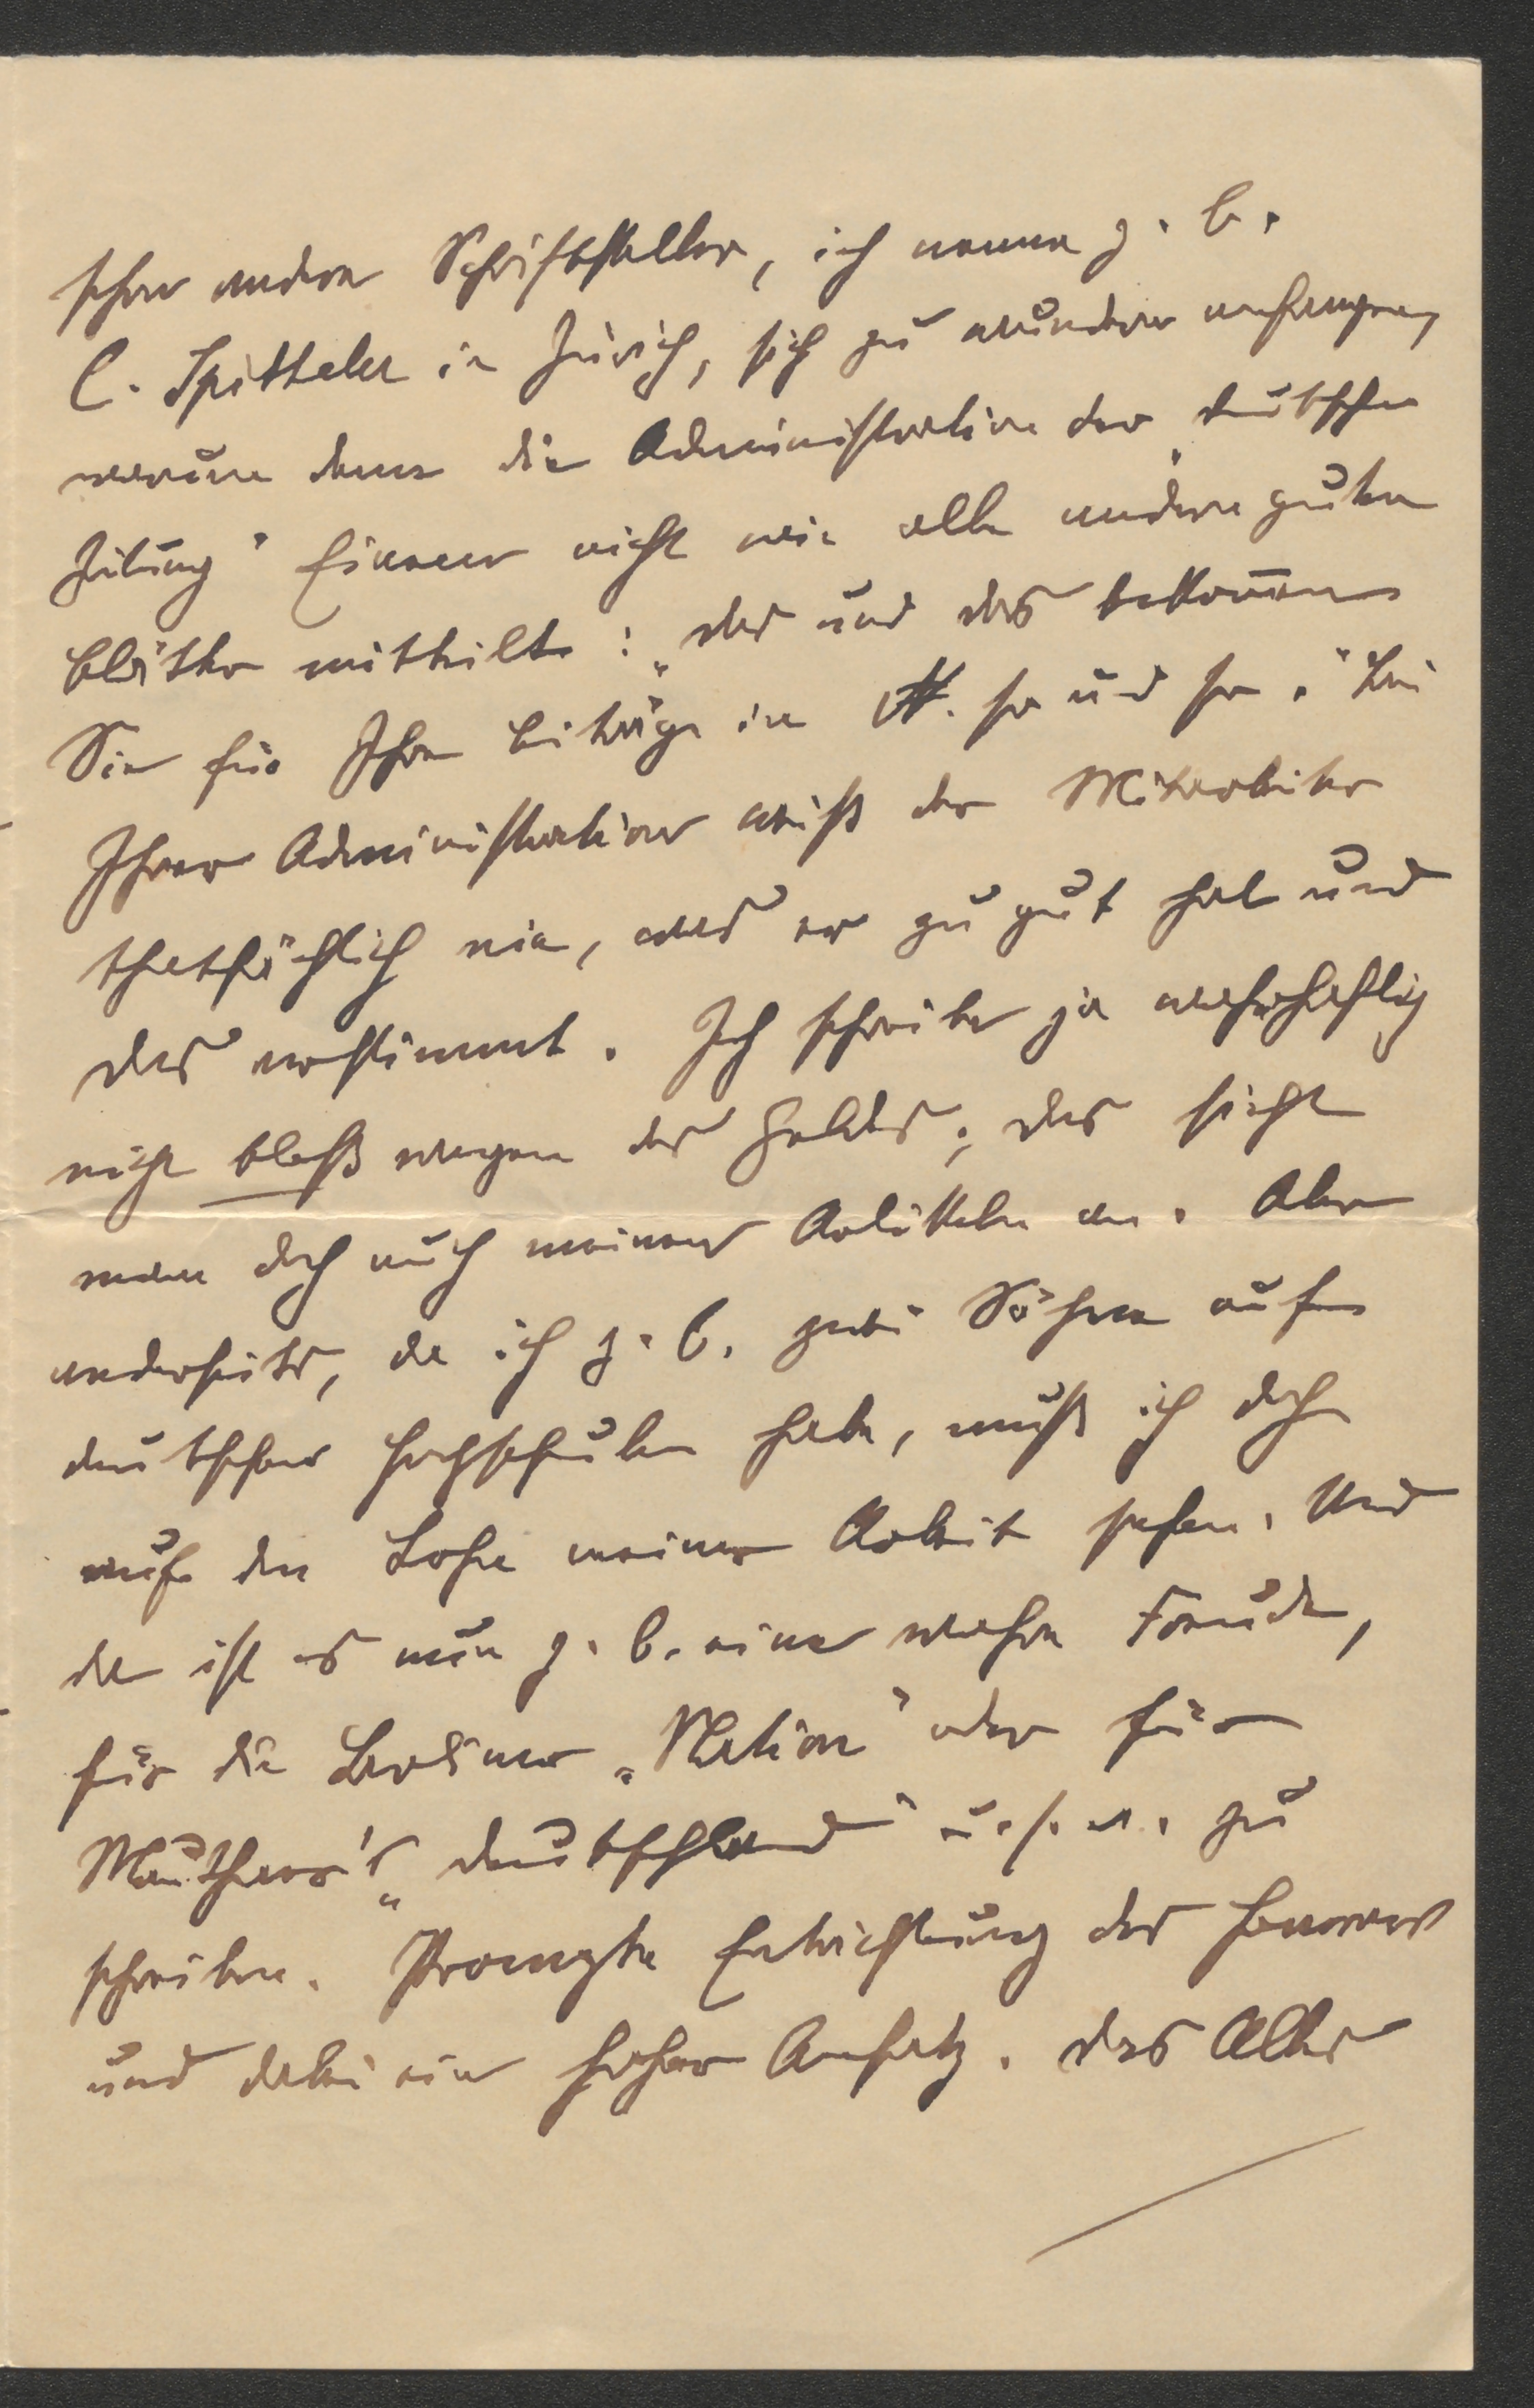 schon andere Schriftsteller, ich nenne z. B.
C. Spitteler in Zürich, sich zu wundern anfangen,
warum denn die Administration der „deutschen
Zeitung" Einem nicht wie alle andern guten
Blätter mittheilt: „das und das bekommen
Sie für Ihre Beiträge in N. so und so." Bei
Ihrer Administration weiß der Mitarbeiter
thatsächlich nie, was er zu gut hat und
das verstimmt. Ich schreibe ja wahrhaftig
nicht bloß wegen des Geldes; das sieht
man doch auch meinen Artikeln an. Aber
anderseits, da ich z. B. zwei Söhne auf
deutschen Hochschulen habe, muß ich doch
auf den Lohn meiner Arbeit sehen. Und
da ist es nun z. B. eine wahre Freude,
für die Berliner „Nation" oder für
Mauthner's „Deutschland" u. s. w. zu
schreiben. Prompte Entrichtung des Honorars
und dabei ein hoher Ansatz. Das Alles